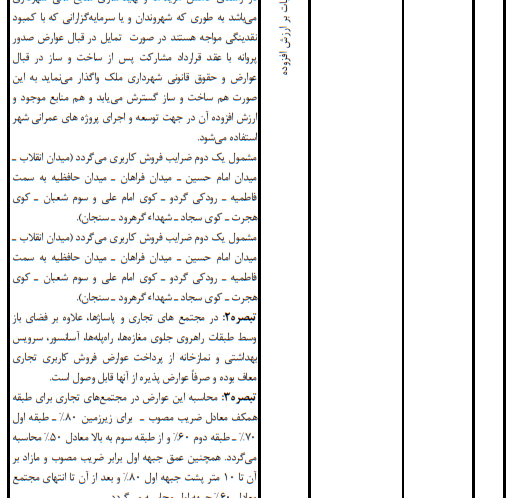 می‌باشد به طوری که شهروندان و یا سرمایه‌گزارانی که با کمبود
نقدینگی مواجه هستند در صورت تمایل در قبال عوارض صدور
پروانه با عقد قرارداد مشارکت پس از ساخت و ساز در قبال
عوارض و حقوق قانونی شهرداری ملک واگذار می‌نماید به این
صورت هم ساخت و ساز گسترش می‌یابد و هم منابع موجود و
ارزش افزوده آن در جهت توسعه و اجرای پروژه های عمرانی شهر
استفاده می‌شود.
مشمول یک دوم ضرایب فروش کاربری می‌گردد (میدان انقلاب ـ
میدان امام حسین ـ میدان فراهان ـ میدان حافظیه به سمت
فاطمیه ـ رودکی گردو ـ کوی امام علی و سوم شعبان ـ کوی
هجرت ـ کوی سجاد ـ شهداء گرهرود ـ سنجان).
مشمول یک دوم ضرایب فروش کاربری می‌گردد (میدان انقلاب ـ
میدان امام حسین ـ میدان فراهان ـ میدان حافظیه به سمت
فاطمیه ـ رودکی گردو ـ کوی امام علی و سوم شعبان ـ کوی
هجرت ـ کوی سجاد ـ شهداء گرهرود ـ سنجان).
تبصره۲: در مجتمع های تجاری و پاساژها، علاوه بر فضای باز
وسط طبقات راهروی جلوی مغازه‌ها، راه‌پله‌ها، آسانسور، سرویس
بهداشتی و نمازخانه از پرداخت عوارض فروش کاربری تجاری
معاف بوده و صرفاً عوارض پذیره از آنها قابل وصول است.
تبصره۳: محاسبه این عوارض در مجتمع‌های تجاری برای طبقه
همکف معادل ضریب مصوب ـ برای زیرزمین ۸۰٪ ـ طبقه اول
۷۰٪ ـ طبقه دوم ۶۰٪ و از طبقه سوم به بالا معادل ۵۰٪ محاسبه
می‌گردد. همچنین عمق جبهه اول برابر ضریب مصوب و مازاد بر
آن تا ۱۰ متر پشت جبهه اول ۸۰٪ و بعد از آن تا انتهای مجتمع
بر ارزش افزوده